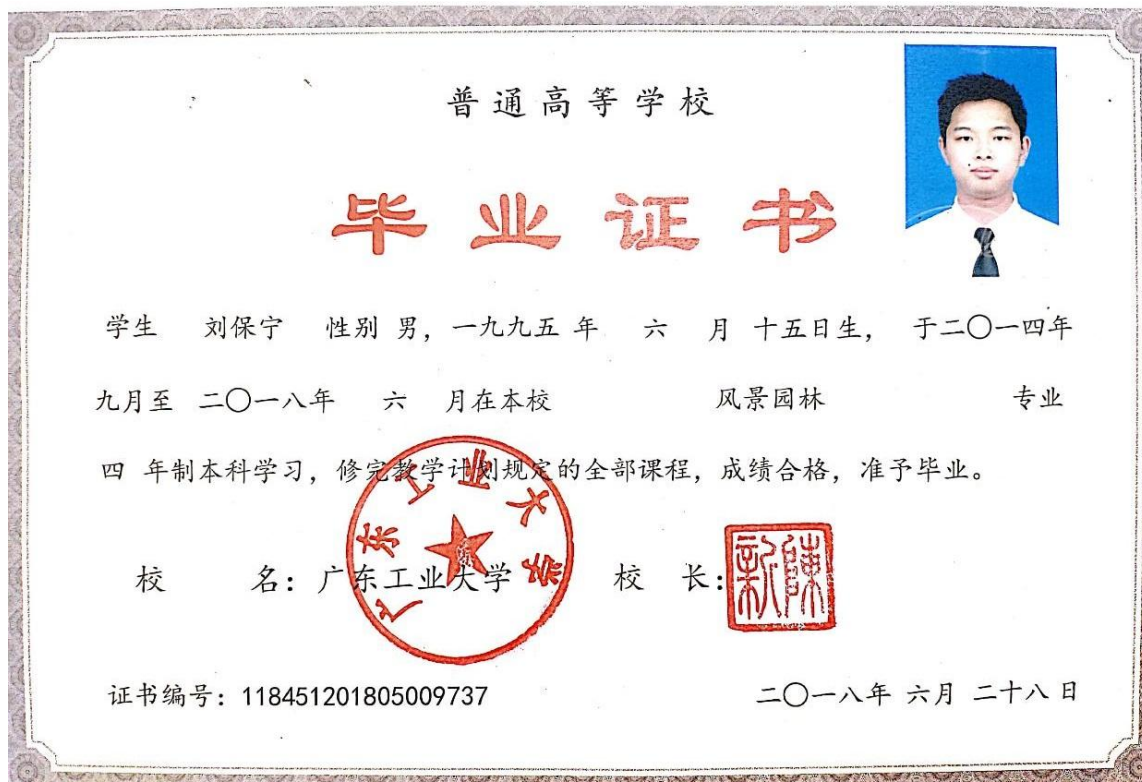 普通高等学校
毕业证书
学生 刘保宁 性别 男，一九九五 年 六 月 十五日生， 于二〇一四年
九月至 二〇一八年 六 月在本校 风景园林 专业
四 年制本科学习，修完教学计划规定的全部课程，成绩合格，准予毕业。
校 名：广东工业大学 校 长：
新陳
证书编号：118451201805009737
二〇一八年 六月 二十八日